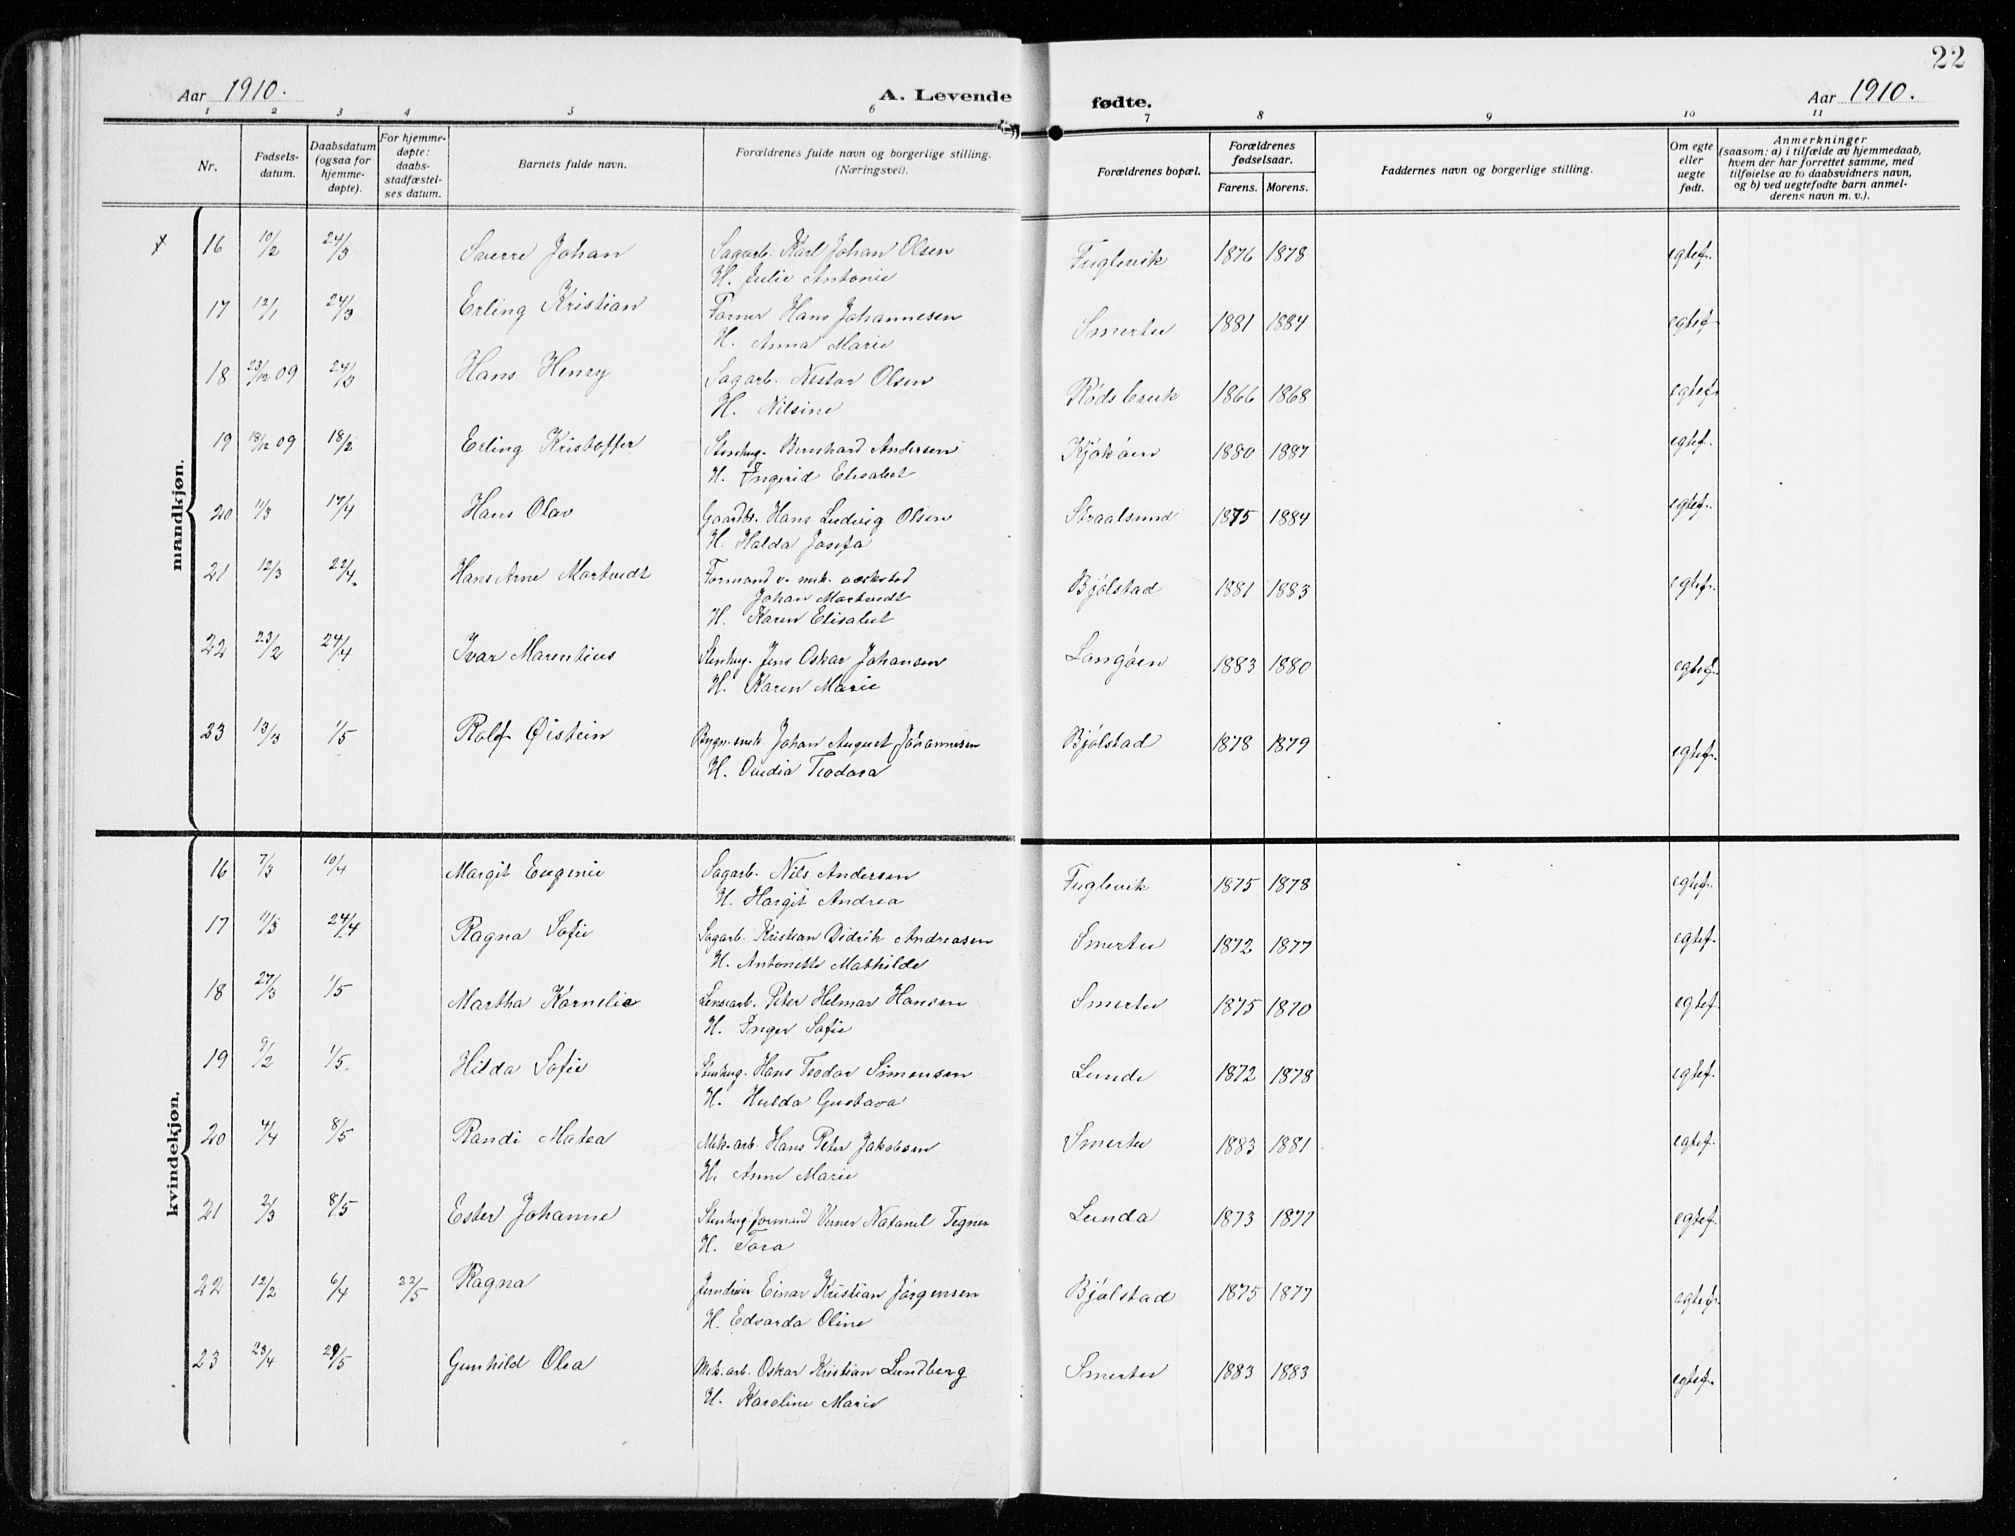 22
Aar 1910.
A. Levende
fødte.
Aar 1910.
1 2 3 4 5 6 7 8 9 10 11
Nr.
Fødsels-
datum.
Daabsdatum
(ogsaa for
hjemme-
døpte).
For hjemme-
døpte:
daabs-
stadfæstel-
ses datum.
Barnets fulde navn.
Forældrenes fulde navn og borgerlige stilling.
(Næringsvei).
Forældrenes bopæl.
Forældrenes
fødselsaar.
Farens. Morens.
Faddernes navn og borgerlige stilling.
Om egte
eller
uegte
født.
Anmerkninger
(saasom: a) i tilfælde av hjemmedaab,
hvem der har forrettet samme, med
tilføielse av to daabsvidners navn,
og b) ved uegtefødte barn anmel-
derens navn m. v.).
mandkjøn.
16 10/2 24/3 Sverre Johan Sagarb. Karl Johan Olsen Fuglevik 1876 1878 egtef.
H. Julie Antonie
17 12/1 24/3 Erling Kristian Former Hans Johannesen Smertu 1881 1884 egtef.
H. Anna Marie
18 23/12 09 24/3 Hans Henry Sagarb. Nestor Olsen Rødsbruk 1866 1868 egtef.
H. Nilsine
19 18/12 09 18/2 Erling Kristoffer Stenhug. Bernhard Andersen Kjøkøen 1880 1887 egtef.
H. Ingerid Elisabet
20 11/3 17/4 Hans Olav Gaardbr. Hans Ludvig Olsen Straalsund 1875 1884 egtef.
H. Halda Josefa
21 12/3 22/4. Hans Arne Martvedt Formand v. mek. værksted Bjølstad 1881 1883 egtef.
Johan Martvedt
H. Karen Elisabet
22 23/2 24/4 Ivar Marentius Stenhug. Jens Oskar Johansen Langøen 1883 1880 egtef.
H. Karen Marie
23 13/3 1/5 Rolf Øistein Bygn. snik. Johan August Johannesen Bjølstad 1878 1879 egtef.
H. Ovedia Teodora
kvindekjøn.
16 7/3 10/4 Margit Eugenie Sagarb. Nils Andersen Fuglevik 1875 1878 egtef.
H. Hargit Andrea
17 11/3 24/4 Ragna Sofie Sagarb. Kristian Didrik Andreasen Smertu 1872 1877 egtef.
H. Antonette Mathilde
18 27/3 1/5 Martha Kornelie Lensearb. Peter Helmar Hansen Smertu 1875 1870 egtef.
H. Inger Sofie
19 9/2 1/5. Hilda Sofie Stenhug. Hans Teodor Simensen Lunde 1872 1878 egtef.
H. Hulda Gustava
20 4/4 8/5 Randi Matea Mek. arb. Hans Peter Jakobsen Smertu 1883 1881 egtef.
H. Anne Marie
21 2/3 8/5 Ester Johanne Stenhug. formand Verner Natanel Tegner Lunda 1873 1877 egtef.
H. Tora
22 12/2 6/4 22/5 Ragna Jerndreier Einar Kristian Jørgensen Bjølstad 1875 1877 egtef.
H. Edvarda Oline
23 23/4 29/5 Gunhild Olea Mek. arb. Oskar Kristian Lundberg Smertu 1883 1883 egtef.
H. Karoline Marie